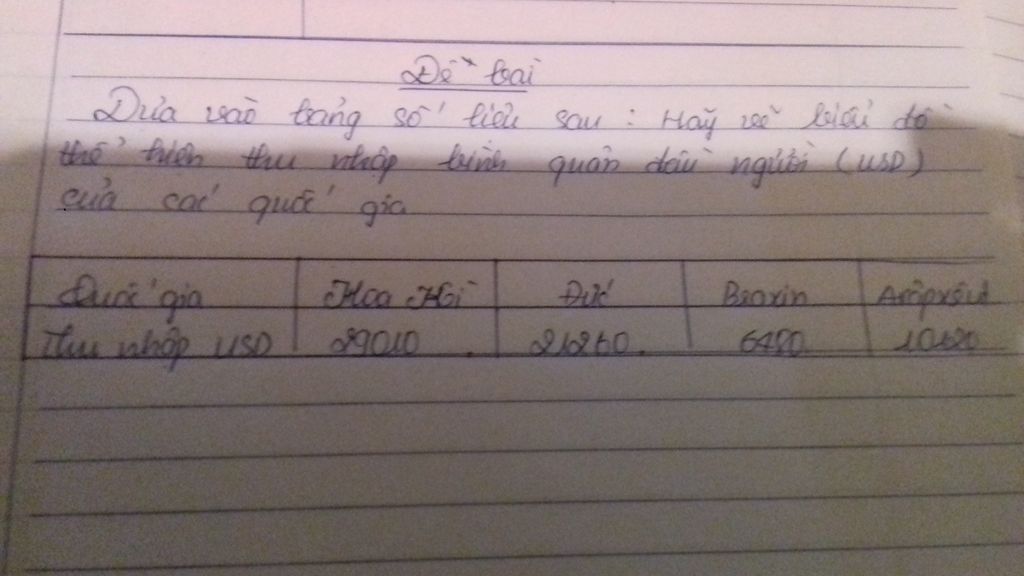 Đề bài
Dựa vào bảng số liệu sau : Hãy vẽ biểu đồ
thể hiện thu nhập bình quân đầu người (USD)
của các quốc gia
Quốc gia Hoa Kì Đức Braxin Arập xêút
Thu nhập USD 29010 21260